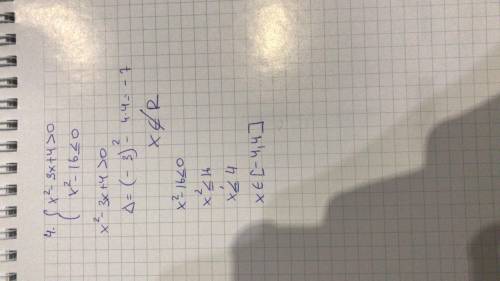 4. { x² - 3x + 4 > 0
x² - 16 ≤ 0
x² - 3x + 4 > 0
Δ = (- 3)² - 4·4 = - 7
x ∉ R
x² - 16 ≤ 0
x² ≤ 16
x ≤ 4
x ∈ [- 4, 4]